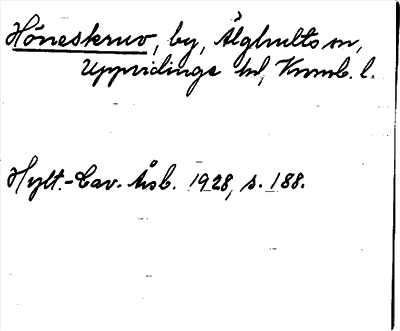 Höneskruv, by, Älghults sn,
Uppvidinge hd, Kronb. l.
Hylt.-Cav. Årsb. 1928, s. 188.